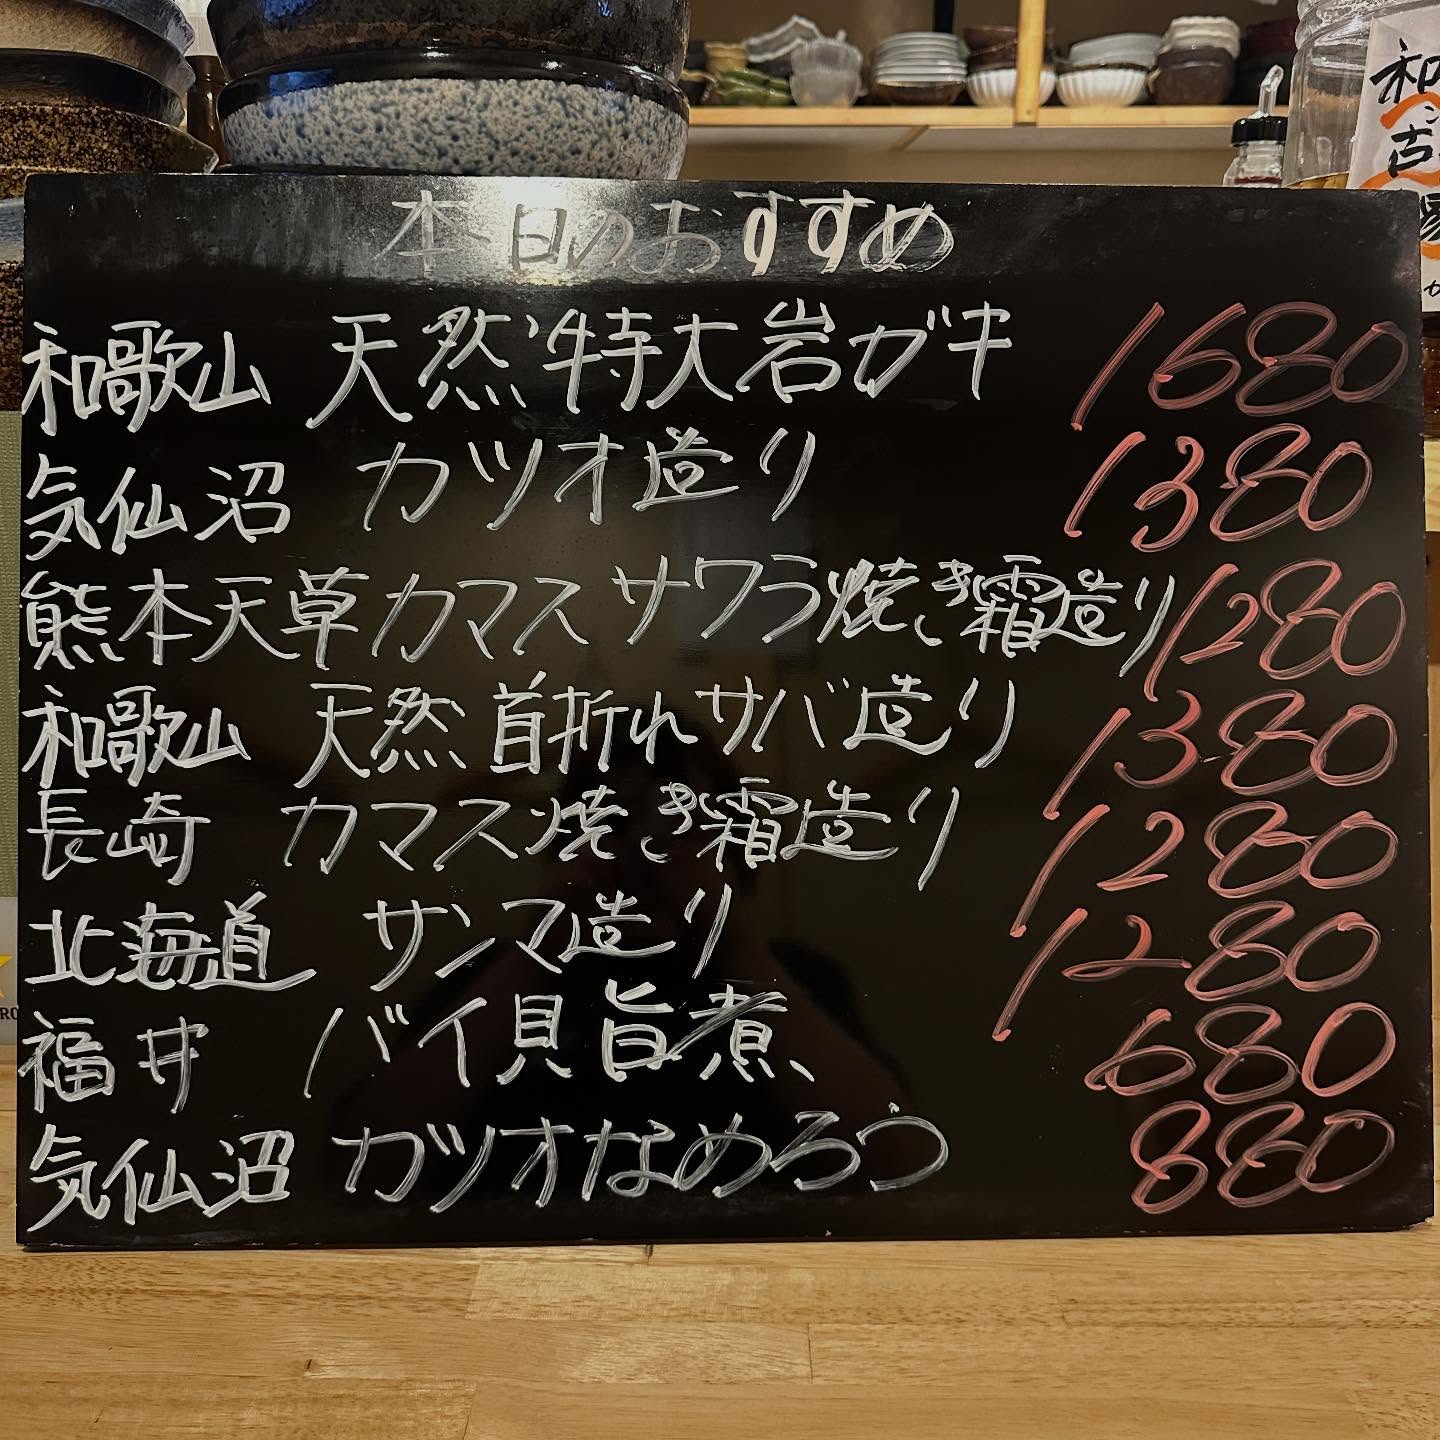 本日のおすすめ
和歌山 天然特大岩ガキ 1680
気仙沼 カツオ造り 1380
熊本天草カマスサワラ焼き霜造り 1280
和歌山 天然首折れサバ造り 1380
長崎 カマス焼き霜造り 1280
北海道 サンマ造り 1280
福井 バイ貝旨煮 680
気仙沼 カツオなめろう 880